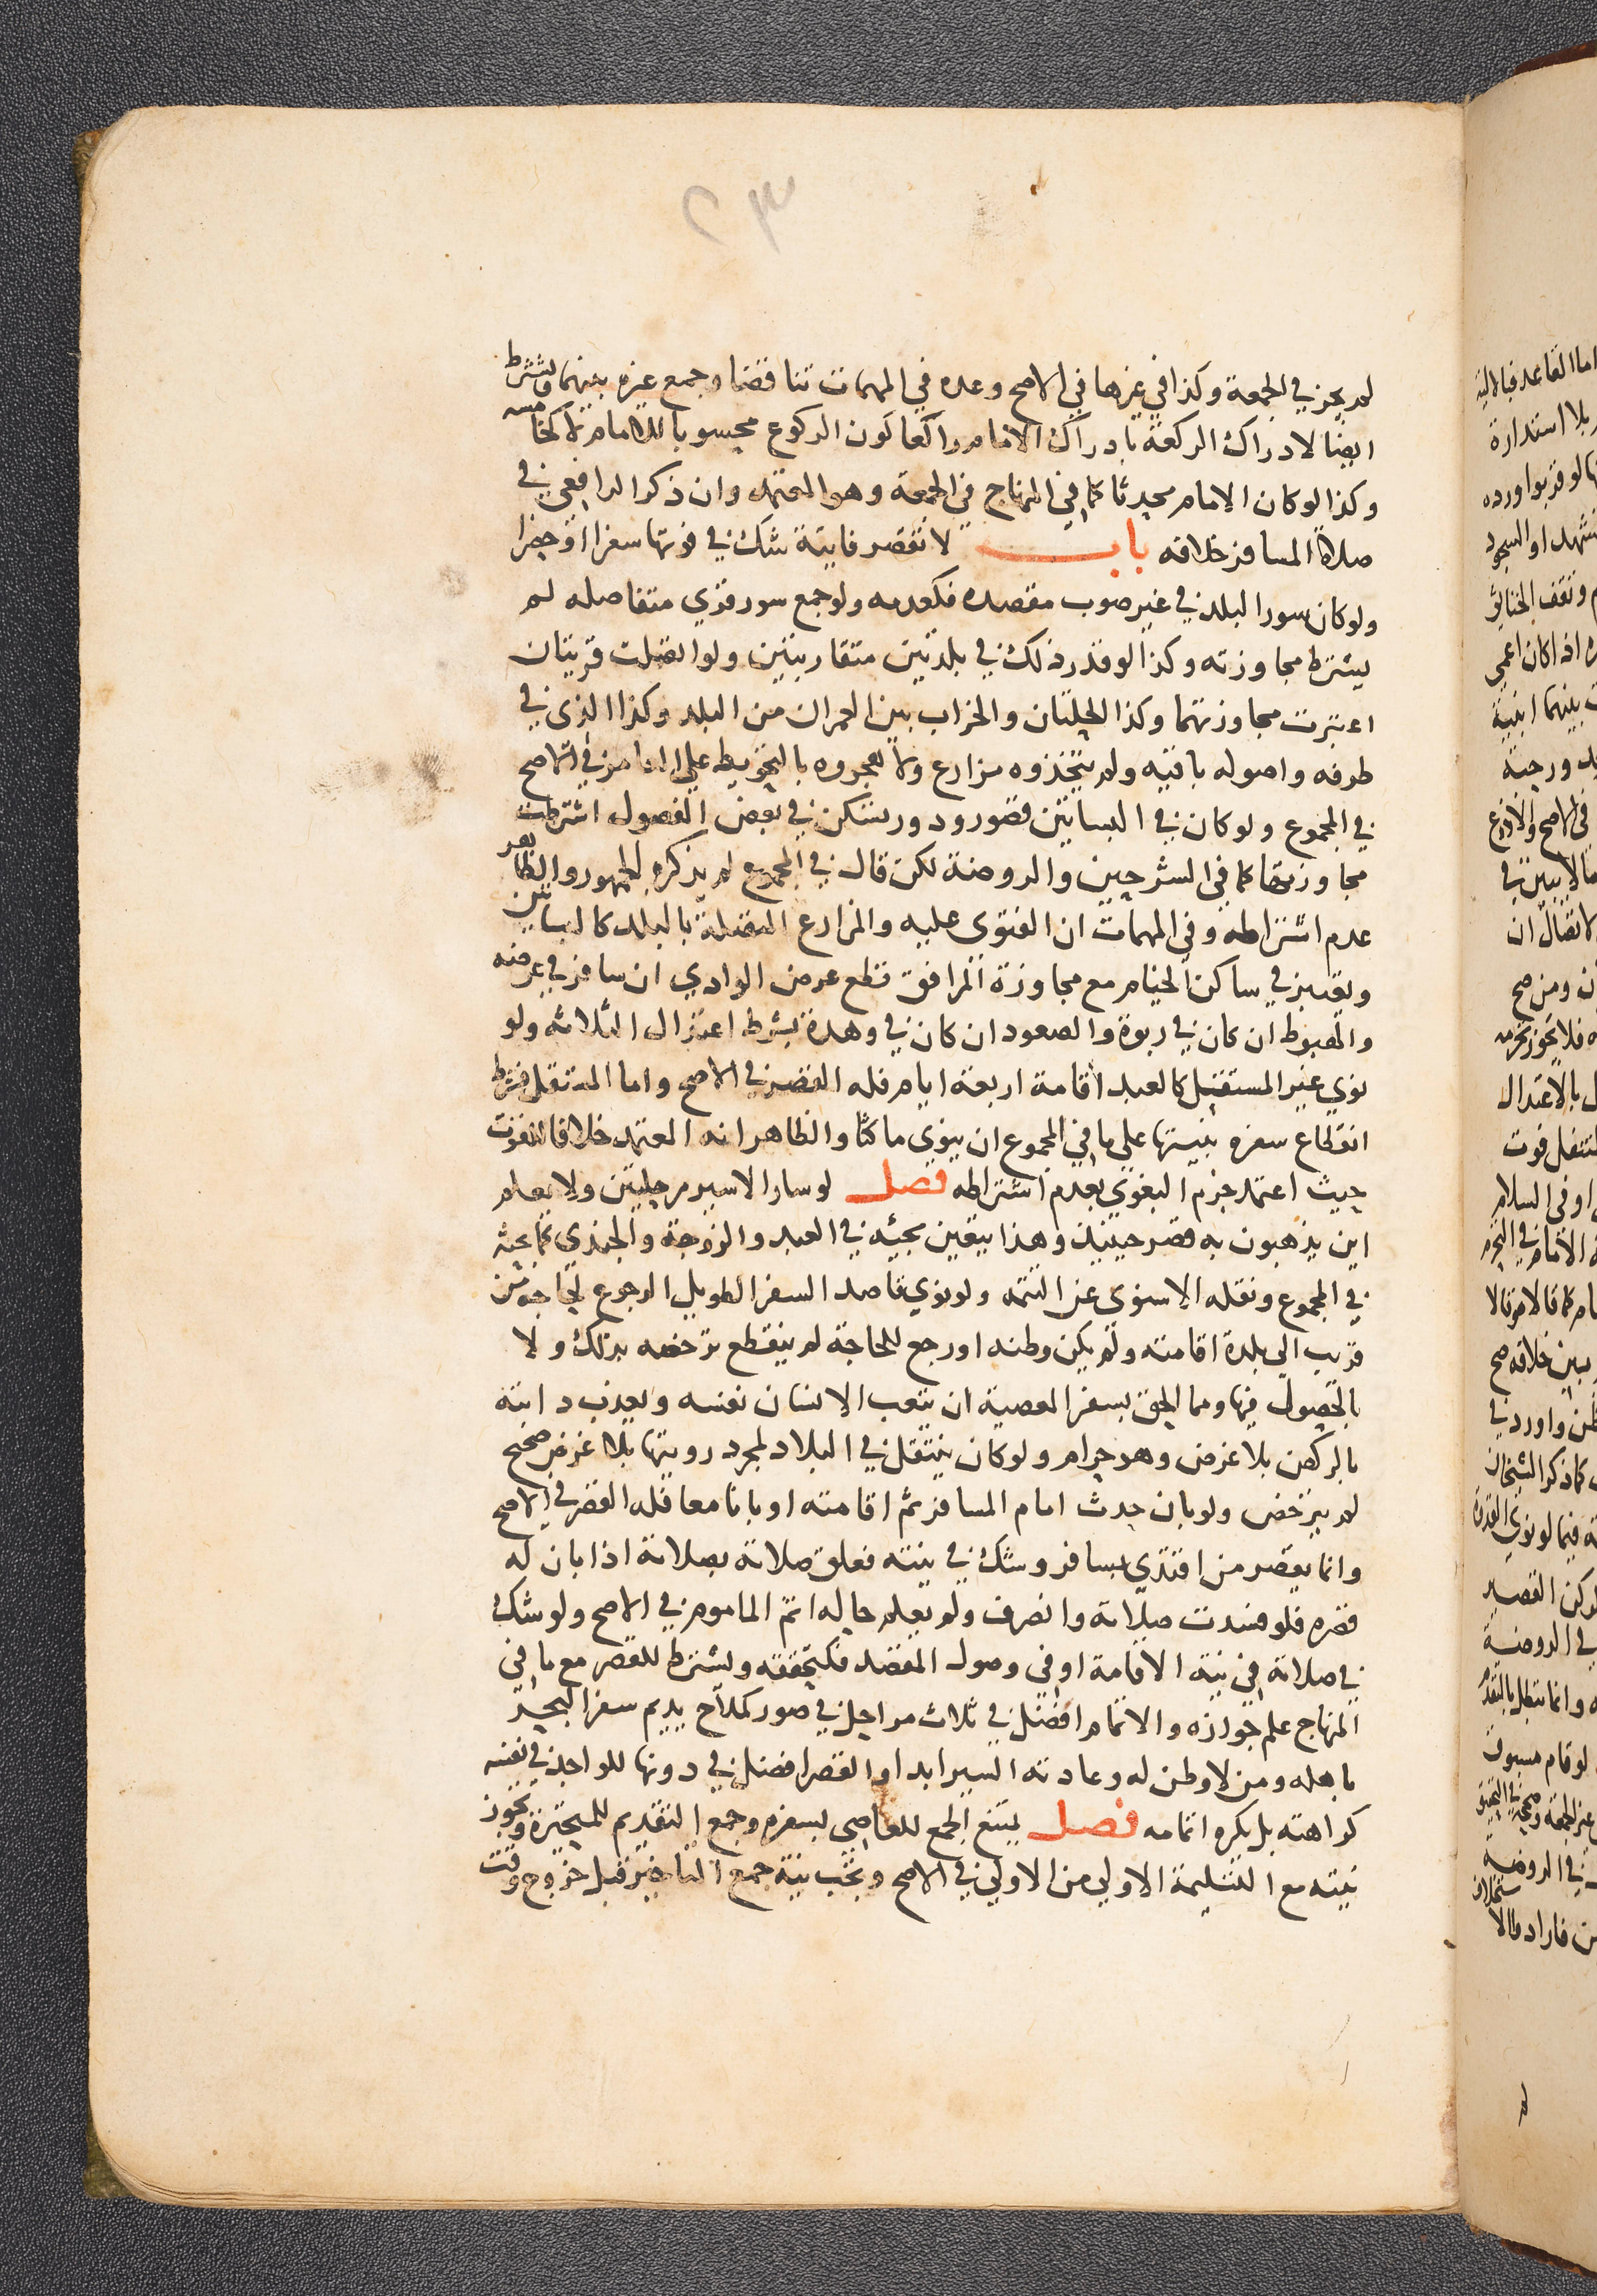 ٢٣
لم يجز في الجمعة وكذا في غيرها في الاصح وعده في المهمات تناقضا وجمع غيره بينهما ويشترط
ايضا لادراك الركعة بادراك الامام راكعا كون الركوع محسوبا للامام لا كخامسه
وكذا لو كان الامام محدثا كما في المنهاج في الجمعة وهو المعتمد وان ذكر الرافعي في
صلاة المسافر خلافه باب لا تقصر فايتة شك في فوتها سفرا او حضرا
ولو كان سور البلد في غير صوب مقصده فكعدمه ولو جمع سور قري متفاصله لم
يشترط مجاوزته وكذا لو قدر ذلك في بلدتين متقاربتين ولو اتصلت قريتان
اعتبرت مجاوزتهما وكذا الحلتان والخراب بين العمران من البلد وكذا الذي في
طرفه واصوله باقيه ولم يتخذوه مزارع ولا هجروه بالتحويط علي العامر في الاصح
في المجموع ولو كان في البساتين قصور ودور تسكن في بعض الفصول اشترطت
مجاوزتها كما في الشرحين والروضة لكن قال في المجموع لم يذكره الجمهور والظاهر
عدم اشتراطه وفي المهمات ان الفتوى عليه والمزارع المتصلة بالبلد كالبساتين
ويعتبر في ساكن الخيام مع مجاوزة المرافق قطع عرض الوادي ان سافر في عرضه
والهبوط ان كان في ربوة والصعود ان كان في وهدة بشرط اعتدال الثلاثه ولو
نوي غير المستقل كالعبد اقامة اربعة ايام فله القصر في الاصح واما المستقل فشرط
انقطاع سفره بنيتها على ما في المجموع ان ينوي ماكثا والظاهر انه المعتمد خلافا
حيث اعتمد جزم البغوي بعدم اشتراطه فصل لو سار الاسير مرحلتين ولا يعلم
اين يذهبون به قصر حينيذ وهذا يتعين مجئه في العبد والزوجة والجندي كما بحثه
في المجموع ونقله الاسنوي عن التتمه ولو نوي قاصد السفر الطويل الرجوع لحاجة من
قريب الي بلدة اقامته ولم يكن وطنه او رجع للحاجة لم ينقطع ترخصه بذلك ولا
بالحصول فيها ومما الحق بسفر المعصية ان يتعب الانسان نفسه ويعذب دابته
بالركض بلا غرض وهو حرام ولو كان ينتقل في البلاد لمجرد رويتها بلا غرض صحيح
لم يترخص ولو بان حدث امام المسافر ثم اقامته او بانا معا فله القصر في الاصح
وانما يقصر من اقتدي بمسافر وشك في نيته فعلق صلاته بصلاته اذا بان له
قصره فلو فسدت صلاته وانصرف ولم يعلم حاله اتم الماموم في الاصح ولو شك
في صلاته في نية الاقامة او في وصول المقصد فكتحققه ويشترط للقصر مع ما في
المنهاج علم جوازه والاتمام افضل في ثلاث مراحل في صور كملاح يديم سفر البحر
باهله ومن لا وطن له وعادته السير ابدا والقصر افضل في دونها للواجد في نفسه
كراهته بل يكره اتمامه فصل يمتنع الجمع للعاصي بسفره وجمع التقديم للمتحيرة ويجوز
نيته مع التسليمة الاولي من الاولي في الاصح ويجب نية جمع التاخير قبل خروج وقت